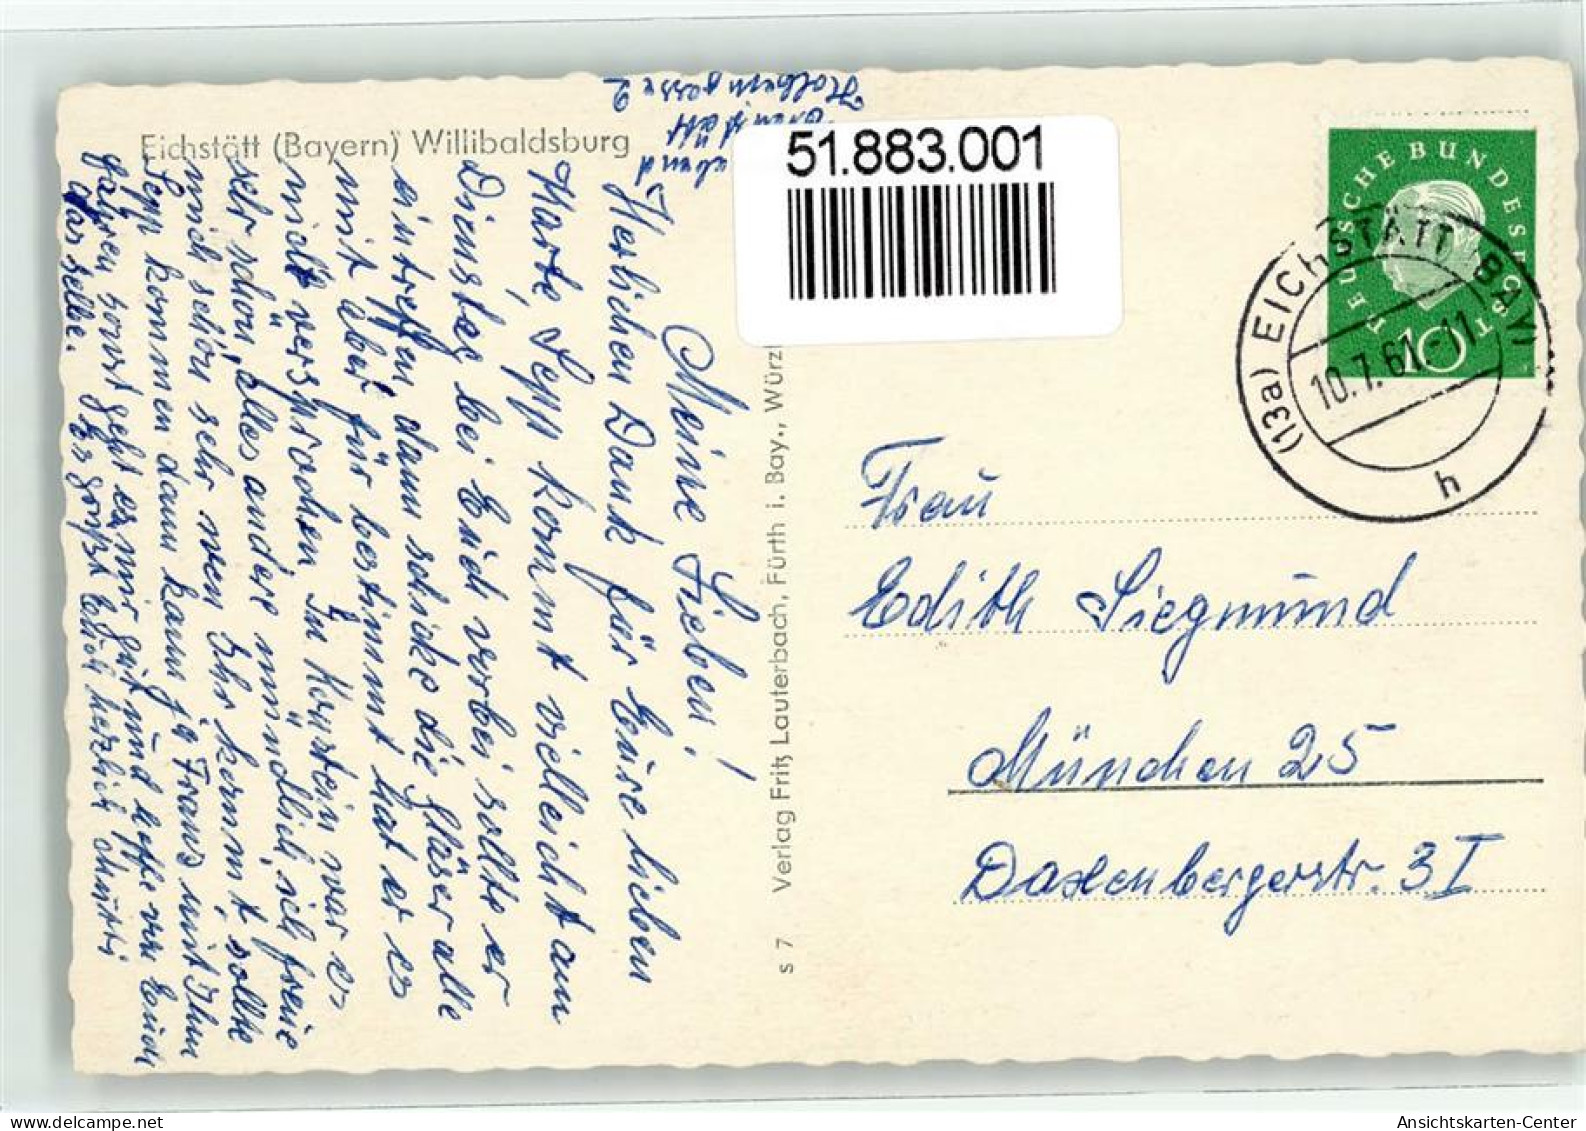 Eichstätt (Bayern) Willibaldsburg
51.883.001
DEUTSCHE BUNDESPOST
10
(13a) EICHSTÄTT (BAY)
10.7.61.-11
h
Frau
Edith Siegmund
München 25
Daxenbergerstr. 3 I
s 7 Verlag Fritz Lauterbach, Fürth i. Bay., Würz
Meine Lieben!
Herlichen Dank für Eure lieben
Karte, Sepp kommt vielleicht am
Dienstag bei Euch vorbei sollte er
eintreffen, dann schicke die Gläser alle
mit aber für bestimmt hat er es
nicht versprochen. In Konstein war es
sehr schön, alles andere mündlich, ich freue
mich schon sehr wen Ihr kommt, sollte
Sepp kommen dann kann ja Franz mit Ihm
fahren sonst geht es mir gut und hoffe von Euch
das selbe. Es grüßt Euch herzlich
www.delcampe.net
Ansichtskarten-Center